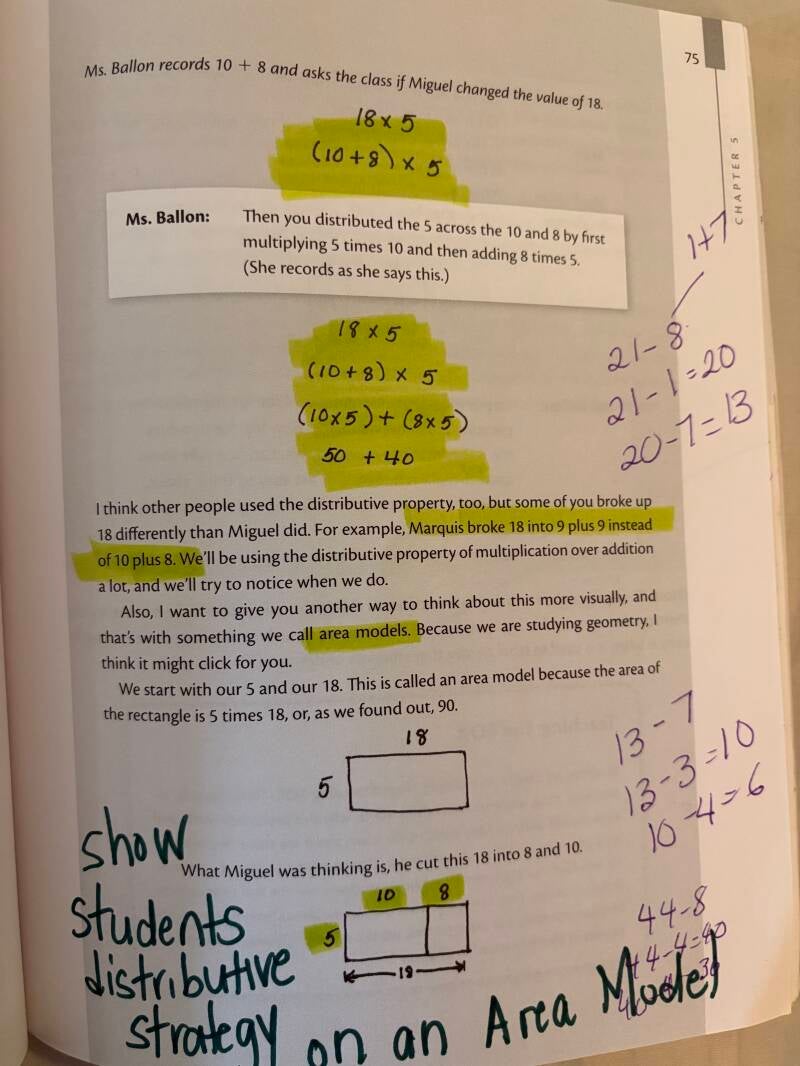 75
CHAPTER 5
Ms. Ballon records 10 + 8 and asks the class if Miguel changed the value of 18.
18 x 5
(10+8) x 5
Ms. Ballon: Then you distributed the 5 across the 10 and 8 by first
multiplying 5 times 10 and then adding 8 times 5.
(She records as she says this.)
18 x 5
(10+8) x 5
(10x5) + (8x5)
50 + 40
1+7
21-8
21-1=20
20-7=13
I think other people used the distributive property, too, but some of you broke up
18 differently than Miguel did. For example, Marquis broke 18 into 9 plus 9 instead
of 10 plus 8. We'll be using the distributive property of multiplication over addition
a lot, and we'll try to notice when we do.
Also, I want to give you another way to think about this more visually, and
that's with something we call area models. Because we are studying geometry, I
think it might click for you.
We start with our 5 and our 18. This is called an area model because the area of
the rectangle is 5 times 18, or, as we found out, 90.
18
5
13-7
13-3=10
10-4=6
What Miguel was thinking is, he cut this 18 into 8 and 10.
10 8
5
18
44-8
44-4=40
show
students
distributive
strategy on an Area Model